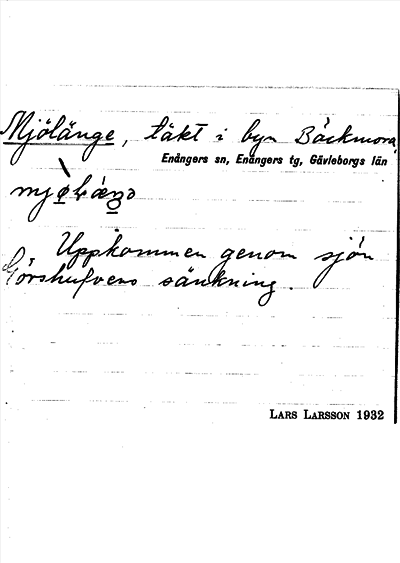 Mjölänge, täkt i byn Bäckmora,
Enångers sn, Enångers tg, Gävleborgs län
Uppkommen genom sjön
Görshufvens sänkning.
LARS LARSSON 1932